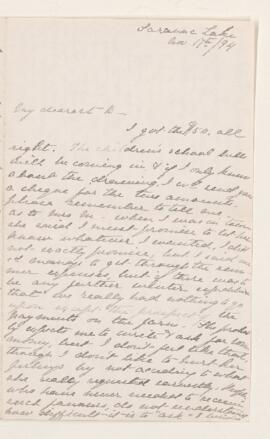 Saranac Lake
Nov 17th/94
My dearest D -
I got the $50. all
right. The children's school bills
will be coming in & if I only knew
about the drawing, I cd send you
a cheque for the two amounts,
please remember to tell me.
as to Mrs M - when I was in town
she said I must promise to let her
know whatever I wanted, I did
not exactly promise, but I said we
manage to get through the sum-
mer expenses, but if there was to
be any further winter expenditure
that we really had nothing to go
upon except the prospect of the
payments on the farm. She probab-
ly expects me to write & ask for some
money, but I don't feel like that,
though I don't like to hurt her
perhaps by not acceding to what
she really requested earnestly. Those
who have never needed to receive
such favours, do not understand
how difficult it is to ask - I wd